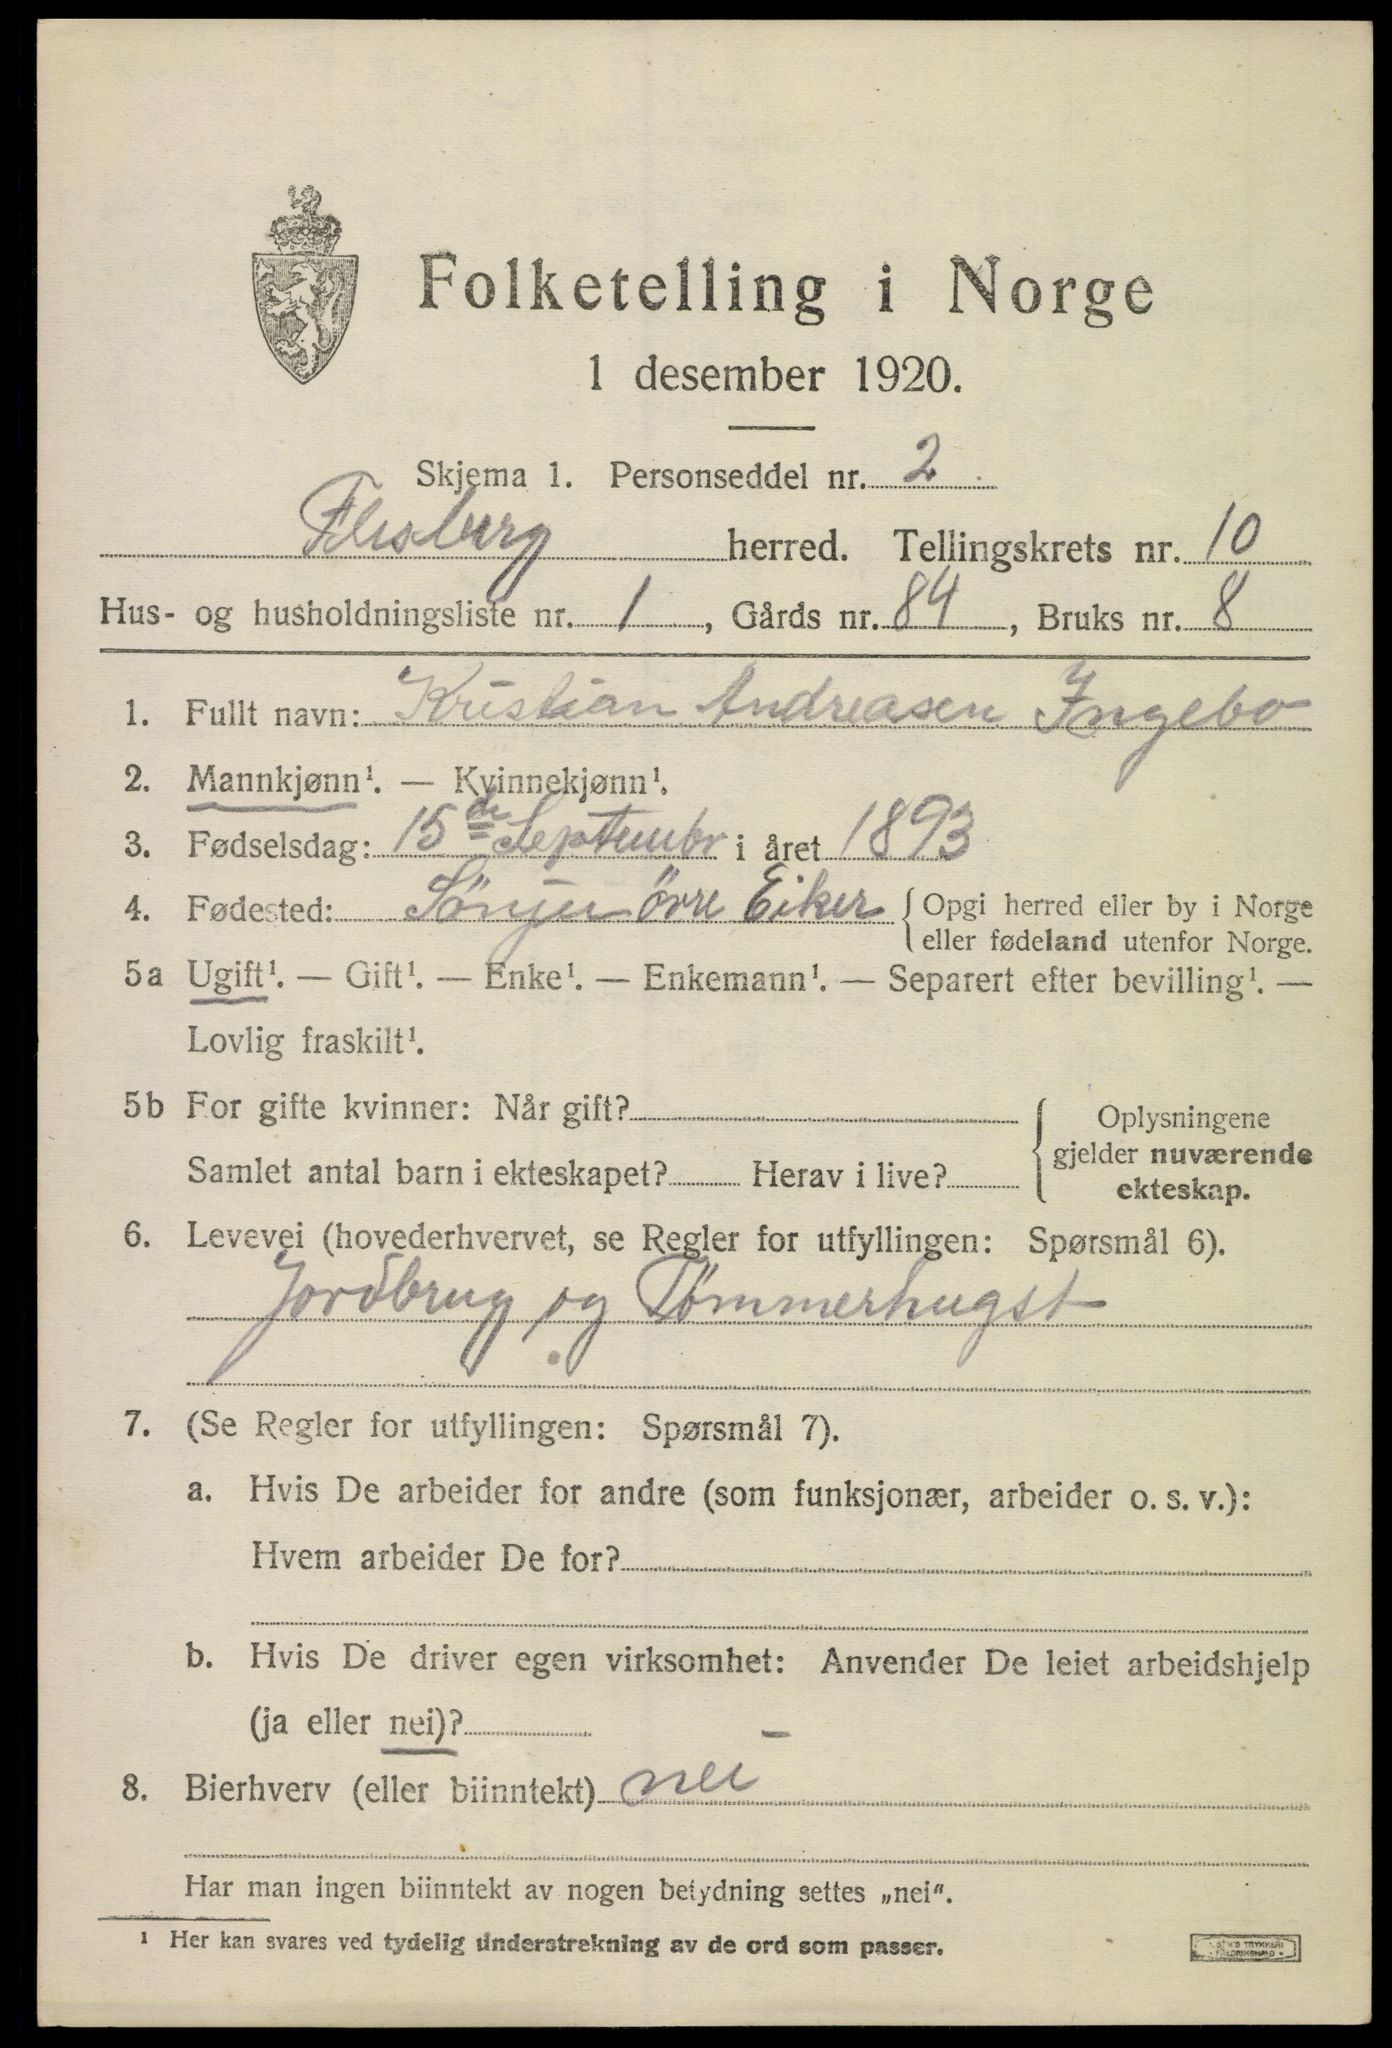 Folketelling i Norge
1 desember 1920.
Skjema 1. Personseddel nr. 2
Flesberg herred. Tellingskrets nr. 10
Hus- og husholdningsliste nr. 1, Gårds nr. 84, Bruks nr. 8
1. Fullt navn: Kristian Andreasen Ingebo
2. Mannkjønn¹. — Kvinnekjønn¹.
3. Fødselsdag: 15de Septembr i året 1893
4. Fødested: övre Eiker { Opgi herred eller by i Norge
eller fødeland utenfor Norge.
5a Ugift¹. — Gift¹. — Enke¹. — Enkemann¹. — Separert efter bevilling¹. —
Lovlig fraskilt¹.
5b For gifte kvinner: Når gift? { Oplysningene
gjelder nuværende
Samlet antal barn i ekteskapet? Herav i live?
ekteskap.
6. Levevei (hovederhvervet, se Regler for utfyllingen: Spørsmål 6).
Jordbrug og Tømmerhugst
7. (Se Regler for utfyllingen: Spørsmål 7).
a. Hvis De arbeider for andre (som funksjonær, arbeider o. s. v.):
Hvem arbeider De for?
b. Hvis De driver egen virksomhet: Anvender De leiet arbeidshjelp
(ja eller nei)? —
8. Bierhverv (eller biinntekt) nei
Har man ingen biinntekt av nogen betydning settes „nei“.
¹ Her kan svares ved tydelig understrekning av de ord som passer.
TRYKKERI
FREDRIKSHALD